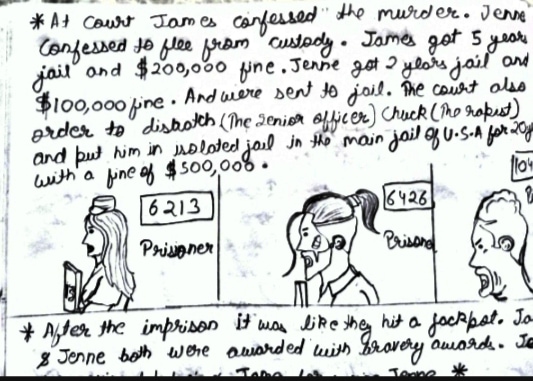 * At court James confessed the murder. Jenne
confessed to flee from custody. James got 5 years
jail and $200,000 fine. Jenne got 2 years jail and
$100,000 fine. And were sent to jail. The court also
order to dispatch (The senior officer) Chuck (The rapist)
and put him in isolated jail in the main jail of U.S.A for 20
with a fine of $500,000.
6213
Prisioner
6426
Prisone
104
* After the imprison it was like they hit a jackpot. Ja
& Jenne both were awarded with bravery awards. Je
*